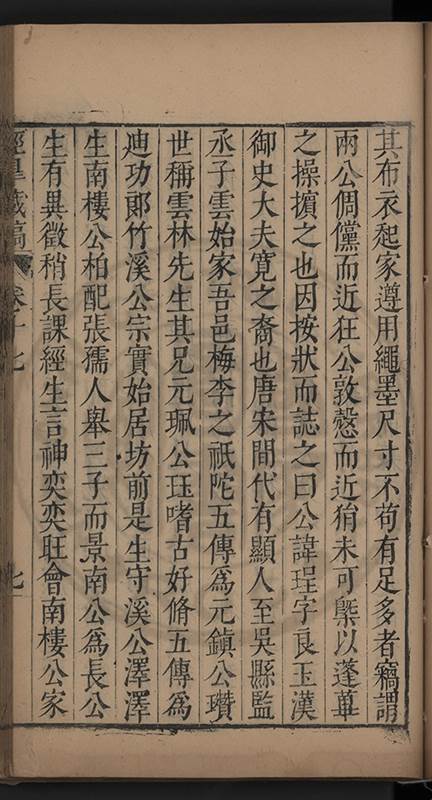 其布衣起家遵用繩墨尺寸不苟有足多者竊謂
兩公倜儻而近狂公敦慤而近狷未可槩以蓬蓽
之操擯之也因按狀而誌之曰公諱珵字良玉漢
御史大夫寬之裔也唐宋間代有顯人至吳縣監
丞子雲始家吾邑梅李之祇陀五傳爲元鎮公瓚
世稱雲林先生其兄元珮公珏嗜古好脩五傳爲
迪功郎竹溪公宗實始居坊前是生守溪公澤澤
生南樓公柏配張孺人舉三子而景南公爲長公
生有異徵稍長課經生言神奕奕旺會南樓公家
經臯藏稿
卷十七
七